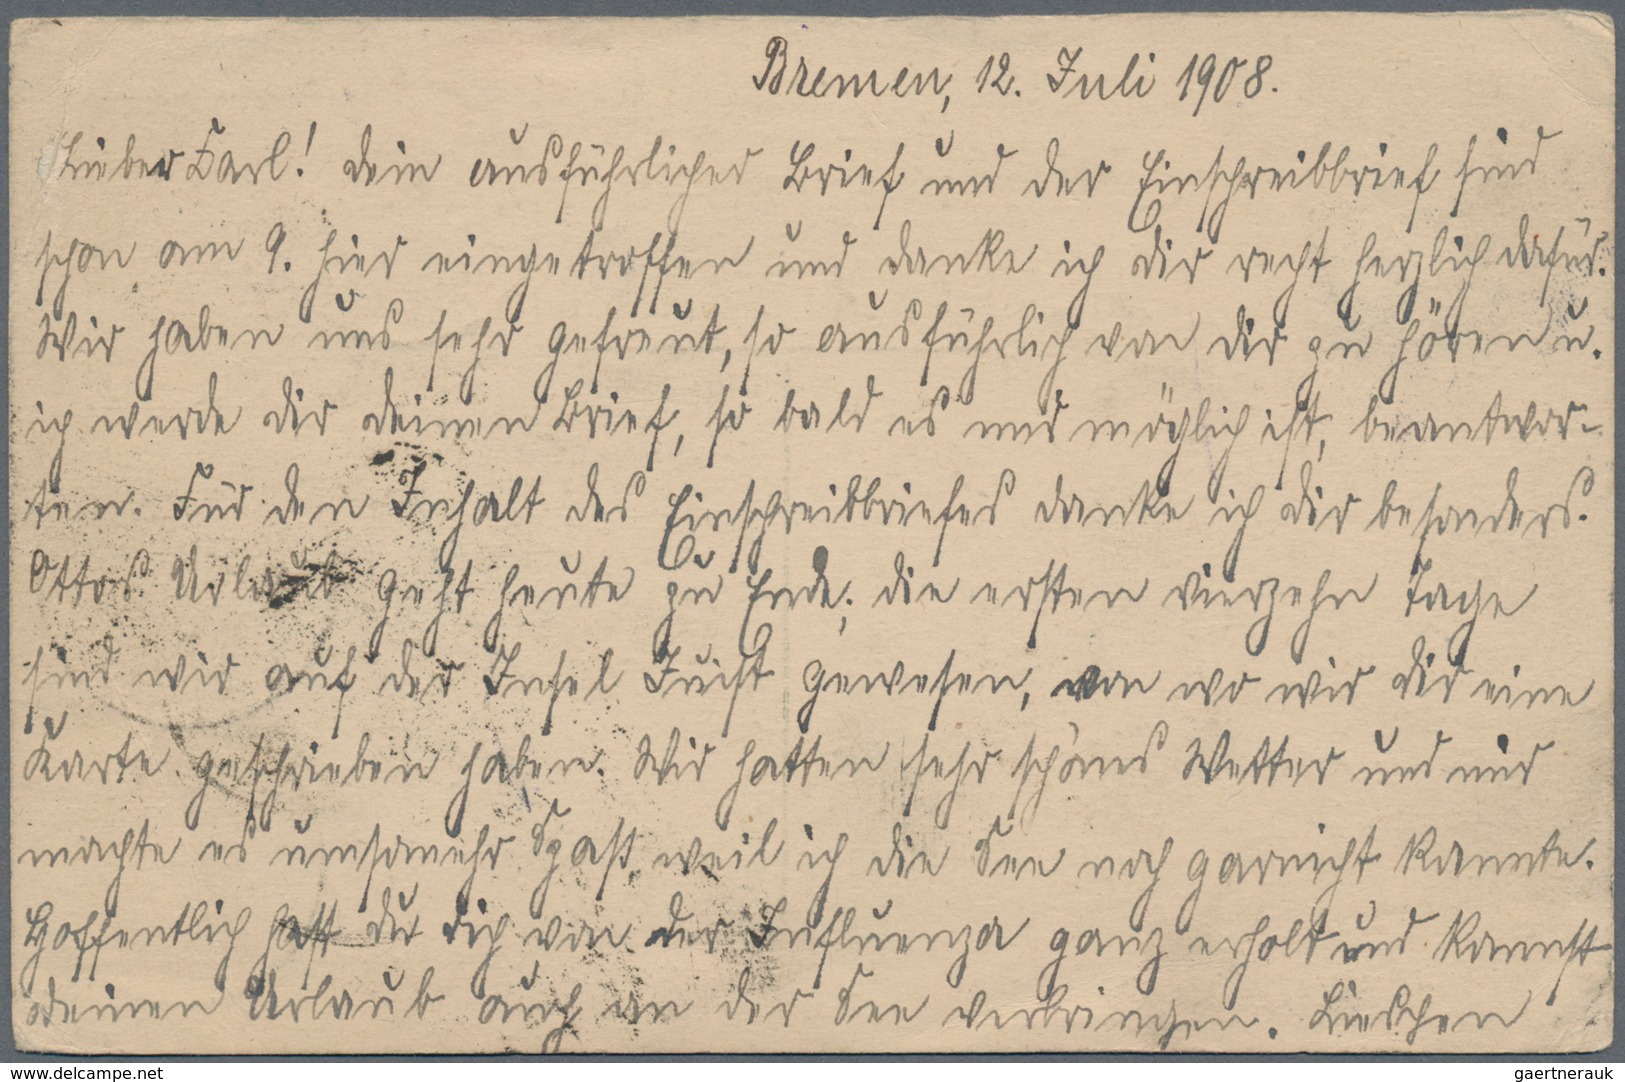 Bremen, 12. Juli 1908.
Lieber Karl! Dein ausführlicher Brief und der Einschreibbrief sind
schon am 9. hier eingetroffen und danke ich dir recht herzlich dafür.
Wir haben uns sehr gefreut, so ausführlich von dir zu hören u.
ich werde dir deinen Brief, so bald es mir möglich ist, beantwor-
ten. Für den Inhalt des Einschreibbriefes danke ich dir besonders.
Ottos Urlaub geht heute zu Ende; die ersten vierzehn Tage
sind wir auf der Insel Juist gewesen, von wo wir dir eine
Karte geschrieben haben. Wir hatten sehr schönes Wetter und mir
machte es umsomehr Spaß, weil ich die See noch garnicht kannte.
Hoffentlich hast du dich von der Influenza ganz erholt und kannst
deinen Urlaub auch an der See verbringen. Lieschen
www.delcampe.net
gaertnerauk